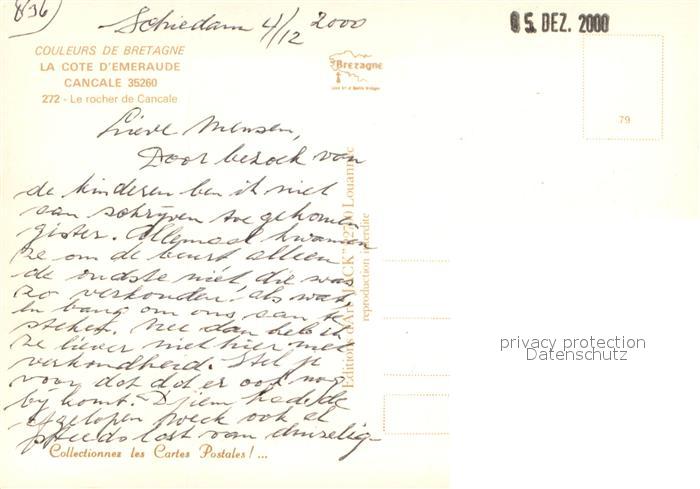 836)
Schiedam 4/12 2000
05. DEZ. 2000
COULEURS DE BRETAGNE
LA COTE D'EMERAUDE
CANCALE 35260
272 - Le rocher de Cancale
Bretagne
79
Lieve mensen,
Door bezoek van
de kinderen ben ik niet
aan schrijven toe gekomen
gister. Allemaal kwamen
ze om de beurt alleen
de oudste niet, die was
zo verkouden als wat,
en bang om ons aan te
steken. Nee dan heb ik
ze liever niet hier met
verkoudheid. Stel je
voor dat dat er ook nog
bij komt. Djiem had de
afgelopen week ook al
steeds last van duizelig-
Collectionnez les Cartes Postales ! ...
Editions d'Art "JACK" Louannec
reproduction interdite
privacy protection
Datenschutz